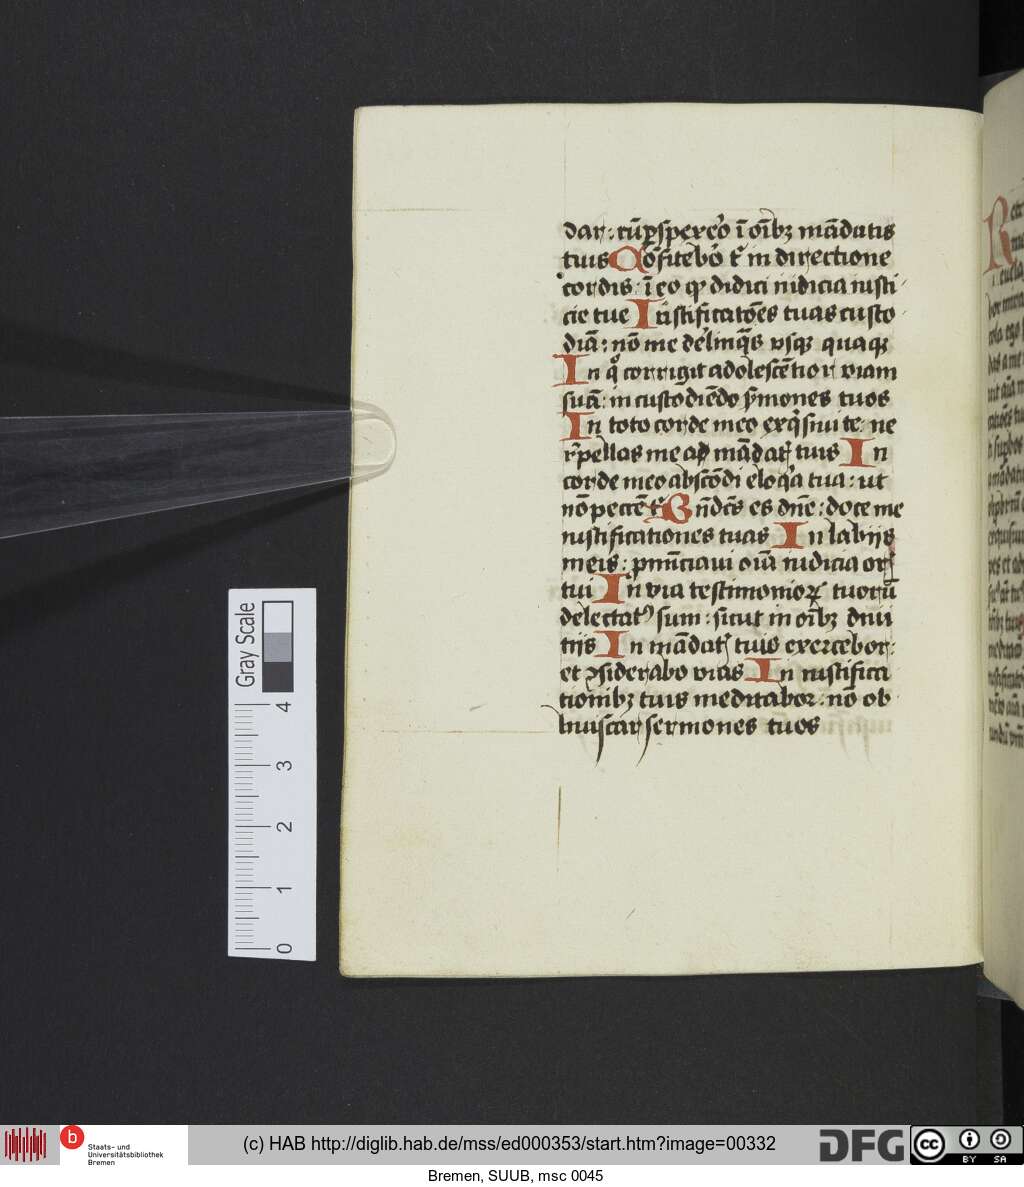 dar: cū ꝑsꝑexeō ī oībꝫ mādatis
tuis Cōfitebō t̄ in directione
cordis: ī eo ꝙ didici iudicia iusti
cie tue Iustificatōes tuas custo
diā: nō me delīnq̄s vsqꝫ quaqꝫ
In qͦ corrigit adolescētior viam
suā: in custodiēdo ẜmones tuos
In toto corde meo exqͥsiui te: ne
r̄pellas me a mādat tuis In
corde meo abscōdi eloqͥa tua: ut
nō peccē t Bn̄dc̄s es dn̄e: doce me
iustificationes tuas In labijs
meis: ꝓnūciaui oīa iudicia or
tui In via testimonioꝝ tuorū
delectatꝰ sum: sicut in oībꝫ diui
tijs In mādat tuis exercebor:
et ꝯsiderabo vias In iustifica
tionibꝫ tuis meditabor: nō ob
liuiscar sermones tuos
Gray Scale
4
3
2
1
0
b Staats- und
Universitätsbibliothek
Bremen
(c) HAB http://diglib.hab.de/mss/ed000353/start.htm?image=00332
DFG
cc BY SA
Bremen, SUUB, msc 0045